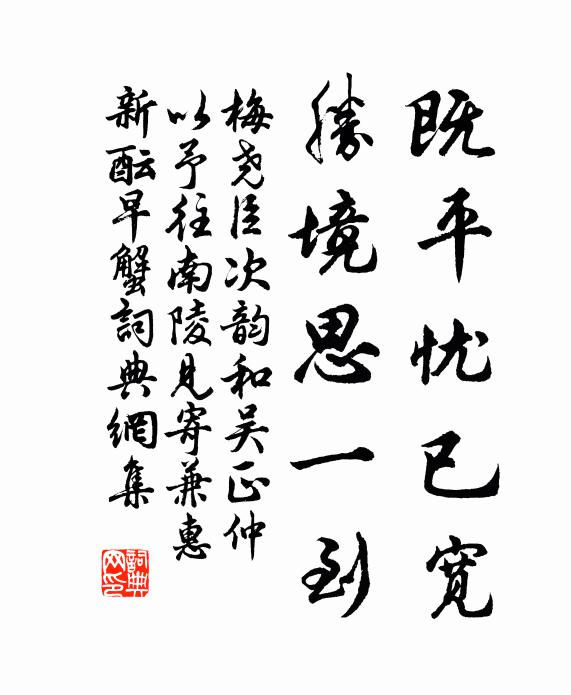 既平忧已宽
勝境思一到
梅尧臣次韵和吴正仲
以予往南陵見寄兼惠
新酝早蟹詞典網集
詞典网印